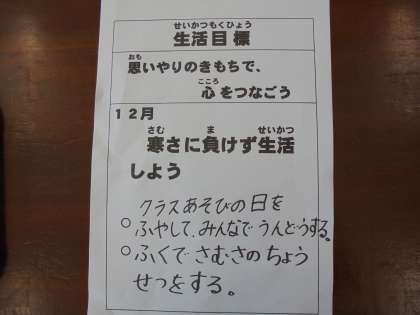 せいかつもくひょう
生活目標
おも
思いやりのきもちで、
こころ
心をつなごう
12月
さむ ま せいかつ
寒さに負けず生活
しよう
クラスあそびの日を
○ふやして、みんなでうんどうする。
○ふくでさむさのちょう
せつをする。